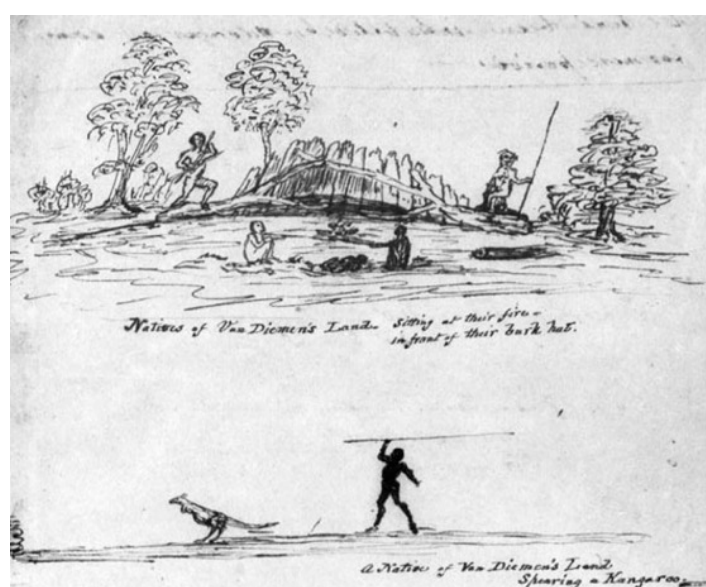 Natives of Van Diemen's Land Sitting at their fire -
in front of their bark hut.
A Native of Van Diemen's Land
Spearing a Kangaroo